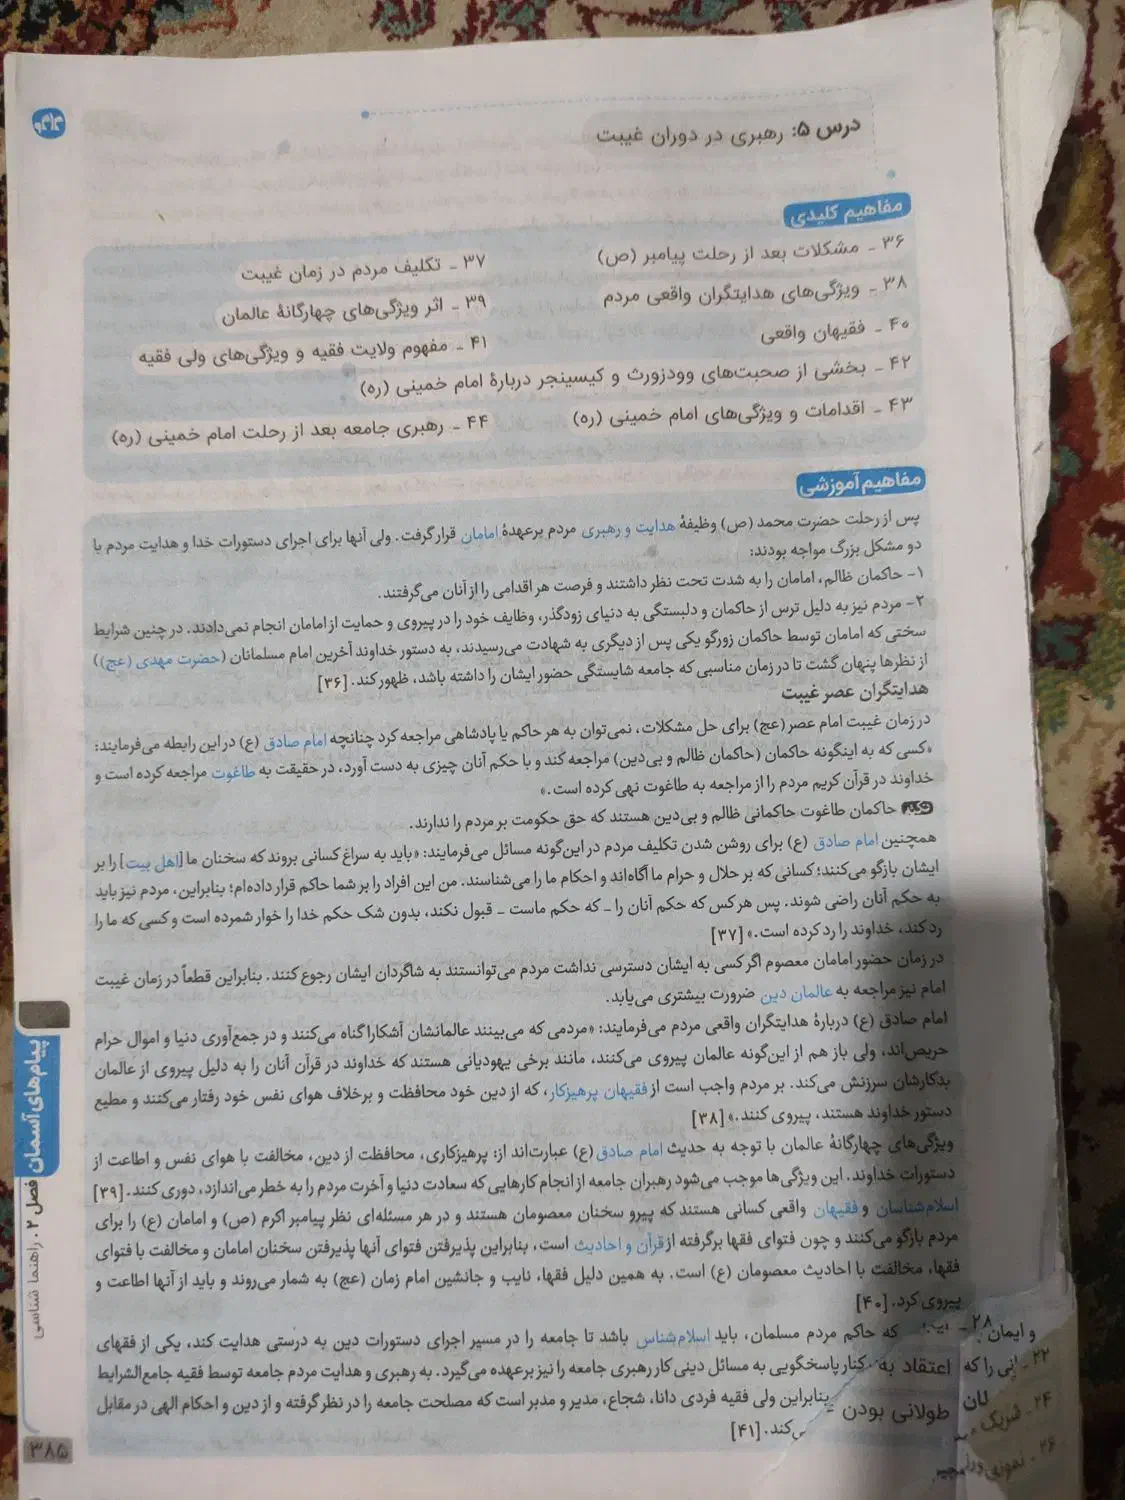 درس ۵: رهبری در دوران غیبت
مفاهیم کلیدی
۳۶ - مشکلات بعد از رحلت پیامبر (ص)
۳۷ - تکلیف مردم در زمان غیبت
۳۸ - ویژگی‌های هدایتگران واقعی مردم
۳۹ - اثر ویژگی‌های چهارگانهٔ عالمان
۴۰ - فقیهان واقعی
۴۱ - مفهوم ولایت فقیه و ویژگی‌های ولی فقیه
۴۲ - بخشی از صحبت‌های وودزورث و کیسینجر دربارهٔ امام خمینی (ره)
۴۳ - اقدامات و ویژگی‌های امام خمینی (ره)
۴۴ - رهبری جامعه بعد از رحلت امام خمینی (ره)
مفاهیم آموزشی
پس از رحلت حضرت محمد (ص) وظیفهٔ هدایت و رهبری مردم برعهدهٔ امامان قرار گرفت. ولی آنها برای اجرای دستورات خدا و هدایت مردم با
دو مشکل بزرگ مواجه بودند:
۱- حاکمان ظالم، امامان را به شدت تحت نظر داشتند و فرصت هر اقدامی را از آنان می‌گرفتند.
۲- مردم نیز به دلیل ترس از حاکمان و دلبستگی به دنیای زودگذر، وظایف خود را در پیروی و حمایت از امامان انجام نمی‌دادند. در چنین شرایط
سختی که امامان توسط حاکمان زورگو یکی پس از دیگری به شهادت می‌رسیدند، به دستور خداوند آخرین امام مسلمانان (حضرت مهدی (عج))
از نظرها پنهان گشت تا در زمان مناسبی که جامعه شایستگی حضور ایشان را داشته باشد، ظهور کند. [۳۶]
هدایتگران عصر غیبت
در زمان غیبت امام عصر (عج) برای حل مشکلات، نمی‌توان به هر حاکم یا پادشاهی مراجعه کرد چنانچه امام صادق (ع) در این رابطه می‌فرمایند:
«کسی که به اینگونه حاکمان (حاکمان ظالم و بی‌دین) مراجعه کند و با حکم آنان چیزی به دست آورد، در حقیقت به طاغوت مراجعه کرده است و
خداوند در قرآن کریم مردم را از مراجعه به طاغوت نهی کرده است.»
نکته حاکمان طاغوت حاکمانی ظالم و بی‌دین هستند که حق حکومت بر مردم را ندارند.
همچنین امام صادق (ع) برای روشن شدن تکلیف مردم در این‌گونه مسائل می‌فرمایند: «باید به سراغ کسانی بروند که سخنان ما [اهل بیت] را بر
ایشان بازگو می‌کنند؛ کسانی که بر حلال و حرام ما آگاه‌اند و احکام ما را می‌شناسند. من این افراد را بر شما حاکم قرار داده‌ام؛ بنابراین، مردم نیز باید
به حکم آنان راضی شوند. پس هرکس که حکم آنان را - که حکم ماست - قبول نکند، بدون شک حکم خدا را خوار شمرده است و کسی که ما را
رد کند، خداوند را رد کرده است.» [۳۷]
در زمان حضور امامان معصوم اگر کسی به ایشان دسترسی نداشت مردم می‌توانستند به شاگردان ایشان رجوع کنند. بنابراین قطعاً در زمان غیبت
امام نیز مراجعه به عالمان دین ضرورت بیشتری می‌یابد.
امام صادق (ع) دربارهٔ هدایتگران واقعی مردم می‌فرمایند: «مردمی که می‌بینند عالمانشان آشکارا گناه می‌کنند و در جمع‌آوری دنیا و اموال حرام
حریص‌اند، ولی باز هم از این‌گونه عالمان پیروی می‌کنند، مانند برخی یهودیانی هستند که خداوند در قرآن آنان را به دلیل پیروی از عالمان
بدکارشان سرزنش می‌کند. بر مردم واجب است از فقیهان پرهیزکار، که از دین خود محافظت و برخلاف هوای نفس خود رفتار می‌کنند و مطیع
دستور خداوند هستند، پیروی کنند.» [۳۸]
ویژگی‌های چهارگانهٔ عالمان با توجه به حدیث امام صادق (ع) عبارت‌اند از: پرهیزکاری، محافظت از دین، مخالفت با هوای نفس و اطاعت از
دستورات خداوند. این ویژگی‌ها موجب می‌شود رهبران جامعه از انجام کارهایی که سعادت دنیا و آخرت مردم را به خطر می‌اندازد، دوری کنند. [۳۹]
اسلام‌شناسان و فقیهان واقعی کسانی هستند که پیرو سخنان معصومان هستند و در هر مسئله‌ای نظر پیامبر اکرم (ص) و امامان (ع) را برای
مردم بازگو می‌کنند و چون فتوای فقها برگرفته از قرآن و احادیث است، بنابراین پذیرفتن فتوای آنها پذیرفتن سخنان امامان و مخالفت با فتوای
فقها، مخالفت با احادیث معصومان (ع) است. به همین دلیل فقها، نایب و جانشین امام زمان (عج) به شمار می‌روند و باید از آنها اطاعت و
پیروی کرد. [۴۰]
که حاکم مردم مسلمان، باید اسلام‌شناس باشد تا جامعه را در مسیر اجرای دستورات دین به درستی هدایت کند، یکی از فقهای
کنار پاسخگویی به مسائل دینی کار رهبری جامعه را نیز برعهده می‌گیرد. به رهبری و هدایت مردم جامعه توسط فقیه جامع‌الشرایط
بنابراین ولی فقیه فردی دانا، شجاع، مدیر و مدبر است که مصلحت جامعه را در نظر گرفته و از دین و احکام الهی در مقابل
می‌کند. [۴۱]
۲۸ -
و ایمان
۲۲ -
اعتقاد به
طولانی بودن
۲۴ - شریک
۲۶ -
پیام‌های آسمان
فصل ۲. راهنما شناسی
۳۸۵